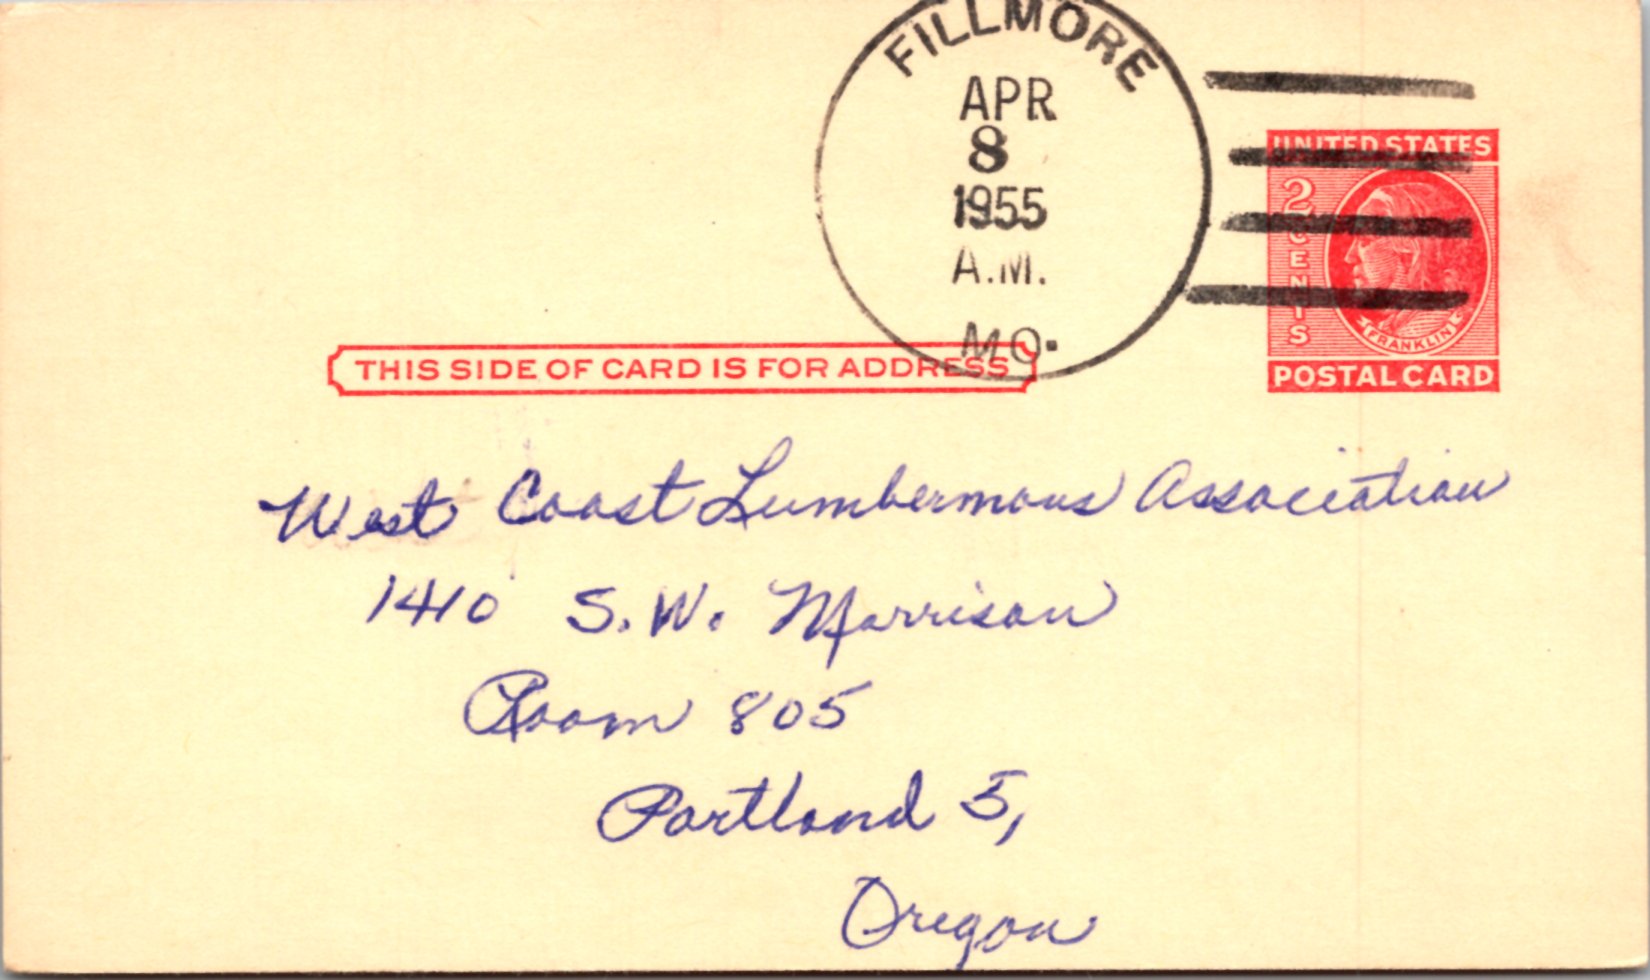 FILLMORE
APR
8
1955
A.M.
MO.
UNITED STATES
2 CENTS
FRANKLIN
POSTAL CARD
THIS SIDE OF CARD IS FOR ADDRESS
West Coast Lumbermans Association
1410 S.W. Morrison
Room 805
Portland 5,
Oregon